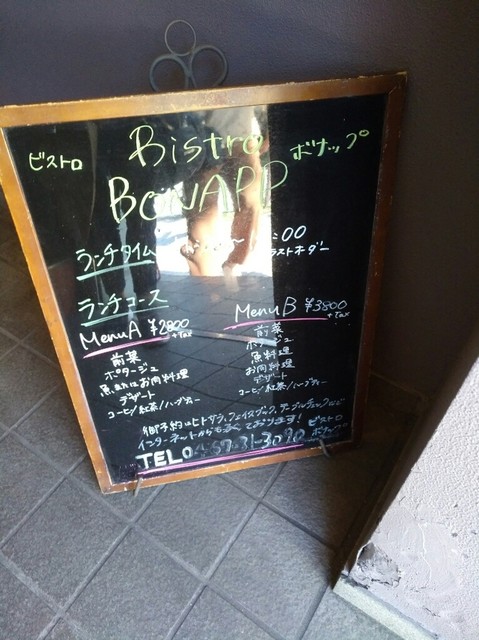 Bistro
ビストロ
ボナップ
BONAPP
ランチタイム 〜 :00
ラストオーダー
ランチコース
Menu A ¥2800
+Tax
前菜
ポタージュ
魚またはお肉料理
デザート
コーヒー/紅茶/ハーブティー
Menu B ¥3800
+Tax
前菜
ポタージュ
魚料理
お肉料理
デザート
コーヒー/紅茶/ハーブティー
御予約はヒトサラ,フェイスブック,テーブルチェックなど
インターネットからも承っております!
ビストロ
ボナップ
TEL